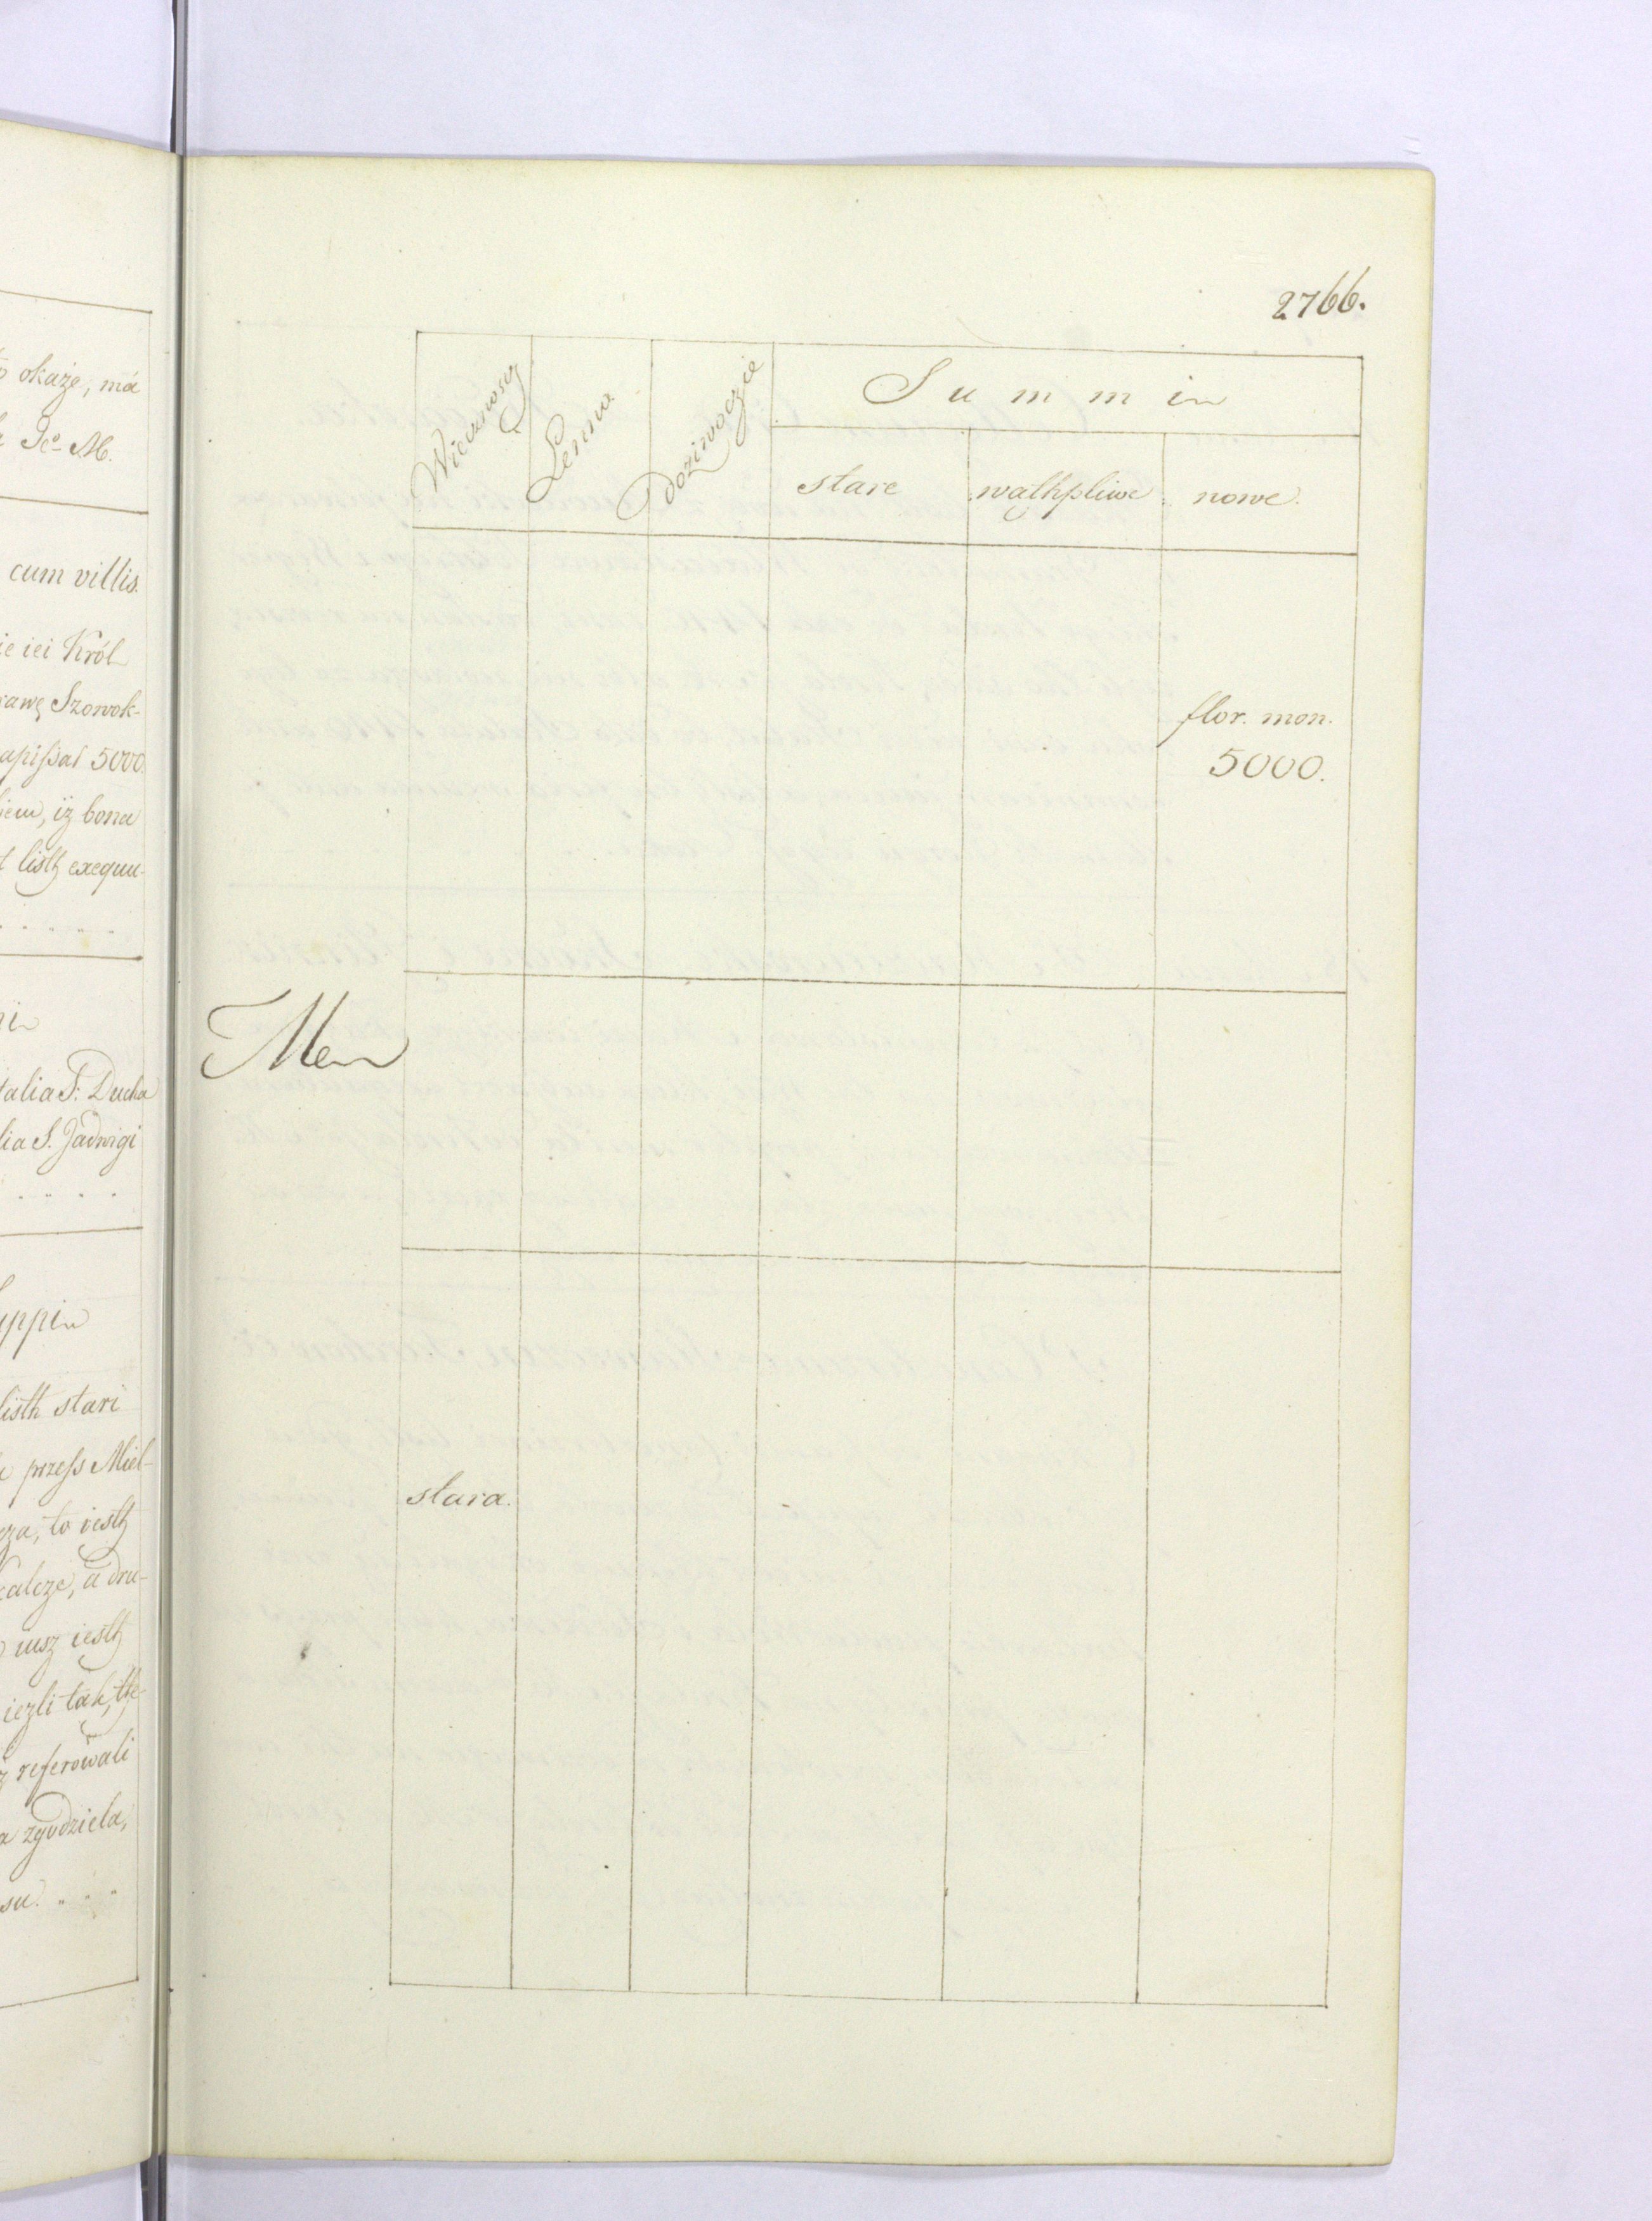 okaże, má
Je⁰ M.
cum villis.
ie iei Król
rawę Szowok-
apißał 5000.
iem, iż bona
listh exequu-
. . . . .
talia S: Ducha
lia S. Jadwigi
. . . .
uppin
listh stari
przeſs Miel-
za, to iesth
kalcze, a dru-
usz iesth
iezli tak, the-
referowali
a zgodziela,
su. . . .
2766.
Wiecznosz Lenno. Dożiwoczie Summi
stare wathpliwe nowe.
flor. mon.
5000.
Men
stara.